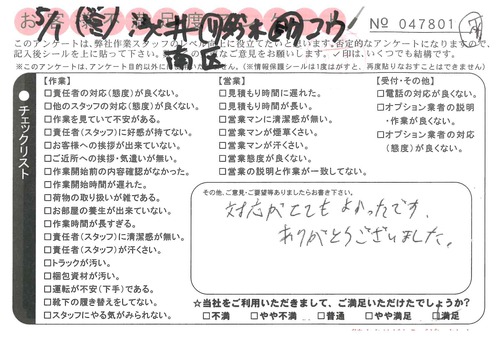 5/1 (金) 浅井(リ)鈴木(明)コウ
南区
No 047801
このアンケートは、弊社作業スタッフのレベル向上に役立てたいと思います。否定的なアンケートになりますので、
記入後シールを上に貼って下さい。
ご意見をお願いします。✓印は、いくつでも結構です。
※このアンケートは、アンケート目的以外に一切使用いたしません。(※情報保護シールは1度はがすと、再度貼りなおすことはできません)
チェックリスト
【作業】
□責任者の対応(態度)が良くない。
□他のスタッフの対応(態度)が良くない。
□作業を見ていて不安がある。
□責任者(スタッフ)に好感が持てない。
□お客様への挨拶が出来ていない。
□ご近所への挨拶・気遣いが無い。
□作業開始前の内容確認がなかった。
□作業開始時間が遅れた。
□荷物の取り扱いが雑である。
□お部屋の養生が出来ていない。
□作業時間が長すぎる。
□責任者(スタッフ)に清潔感が無い。
□責任者(スタッフ)が汗くさい。
□トラックが汚い。
□梱包資材が汚い。
□運転が不安(下手)である。
□靴下の履き替えをしてない。
□スタッフにやる気がみられない。
【営業】
□見積もり時間に遅れた。
□見積もり時間が長い。
□営業マンに清潔感が無い。
□営業マンが煙草くさい。
□営業マンが汗くさい。
□営業態度が良くない。
□営業の説明と作業が一致してない。
【受付・その他】
□電話の対応が良くない。
□オプション業者の説明
・作業が良くない。
□オプション業者の対応
(態度)が良くない。
その他、ご意見・ご要望等ありましたらお書き下さい。
対応がとてもよかったです。
ありがとうございました。
☆当社をご利用いただきまして、ご満足いただけたでしょうか?
□不満 □やや不満 □普通 □やや満足 □満足